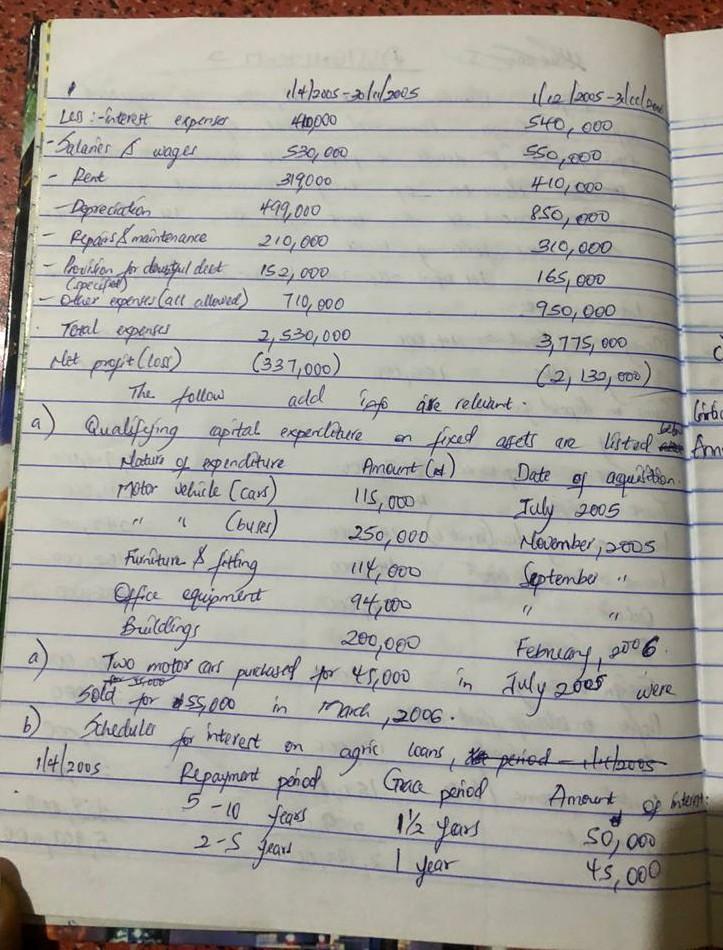 1/4/2005-30/11/2005 1/12/2005-
Less:-interest expenses 410,000 540,000
- Salaries & wages 530,000 550,000
- Rent 319000 410,000
- Depreciation 499,000 850,000
- Repairs & maintenance 210,000 310,000
- Provision for doubtful debt 152,000 165,000
(specified)
- Other expenses (all allowed) 710,000 950,000
Total expenses 2,530,000 3,775,000
Net profit (loss) (337,000) (2,132,000)
The follow add info are relevant.
a) Qualifying capital expenditure on fixed assets are listed below
Nature of expenditure Amount (₦) Date of aquisition.
Motor vehicle (cars) 115,000 July 2005
" " (buses) 250,000 November, 2005
Furniture & fitting 114,000 September "
Office equipment 94,000 " "
Buildings 200,000 February, 2006.
a) Two motor cars purchased for 45,000 in July 2005 were
sold for 55,000 in March, 2006.
b) Schedules for interest on agric loans,
1/4/2005 Repayment period Grace period Amount of interest:
5-10 years 1½ years 50,000
2-5 years 1 year 45,000